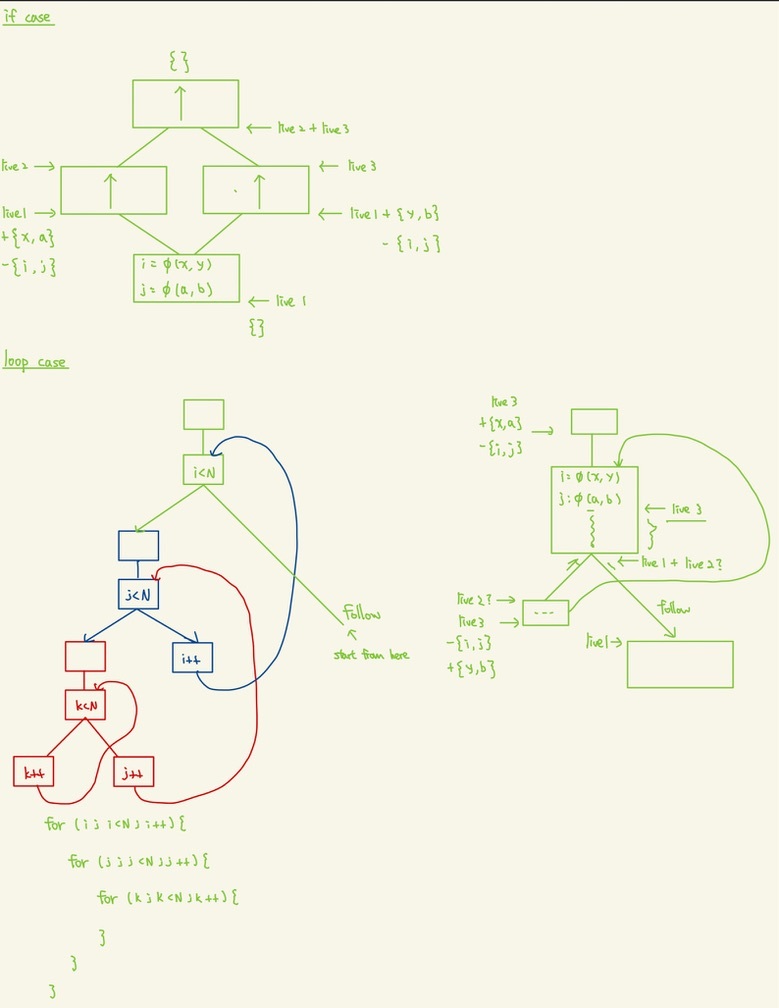 if case
{}
live 2 + live 3
live 2
live 3
live 1
+{x,a}
-{i,j}
live 1 + {y,b}
-{i,j}
i = φ(x,y)
j = φ(a,b)
live 1
{}
loop case
i<N
j<N
i++
k<N
k++
j++
follow
start from here
for (i; i<N; i++){
for (j; j<N; j++){
for (k; k<N; k++){
}
}
}
live 3
+{x,a}
-{i,j}
i = φ(x,y)
j: φ(a,b)
live 3
}
live 1 + live 2?
live 2?
live 3
-{i,j}
+{y,b}
---
follow
live 1